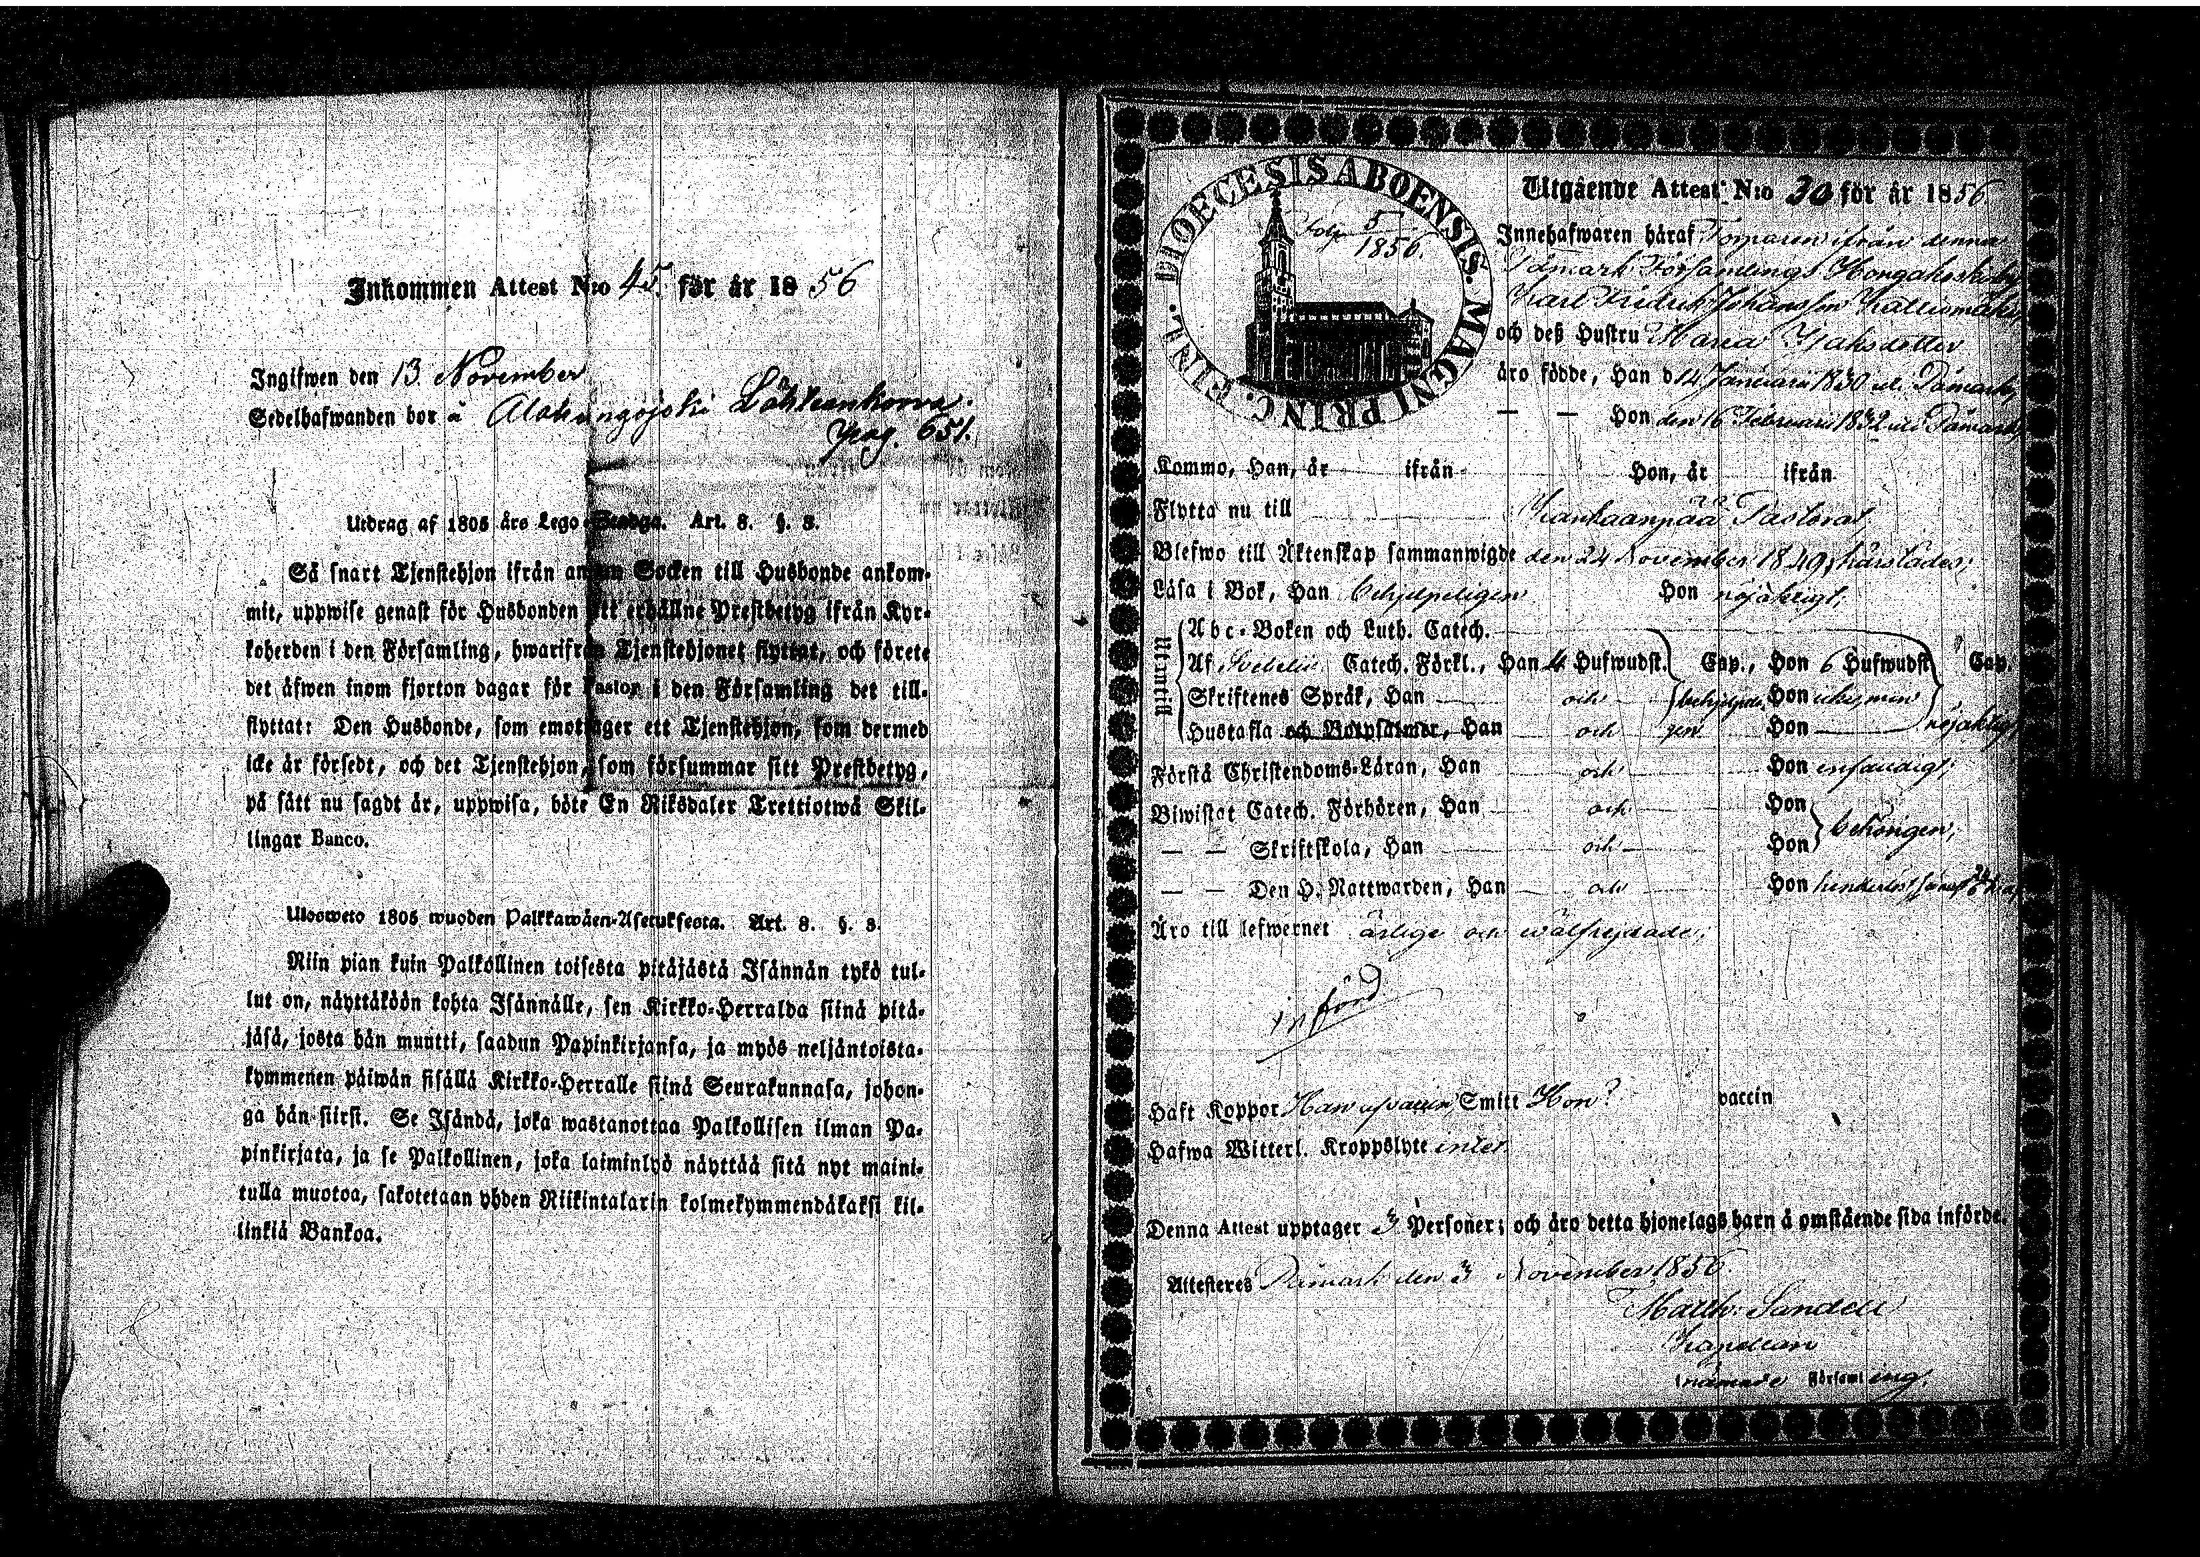 Inkommen Attest N:o 45. för år 1856
Ingifwen den 13 November
Sedelhafwanden bor å Alahongojoki Lähteenkorva.
pag. 651.
Utdrag af 1805 års Lego-Stadga. Art. 8. §. 3.
Så snart Tjenstehjon ifrån annan Socken till Husbonde ankom-
mit, uppwise genast för Husbonden sitt erhållne Prestbetyg ifrån Kyr-
koherden i den Församling, hwarifrån Tjenstehjonet flyttat, och förete
det äfwen inom fjorton dagar för Pastor i den Församling det till-
flyttat: Den Husbonde, som emottager ett Tjenstehjon, som dermed
icke är försedt, och det Tjenstehjon, som försummar sitt Prestbetyg,
på sätt nu sagdt är, uppwisa, böte En Riksdaler Trettiotwå Skil-
lingar Banco.
Ulosweto 1805 wuoden Palkkawäen-Asetuksesta. Art. 8. §. 3.
Niin pian kuin Palkollinen toisesta pitäjästä Isännän tykö tul-
lut on, näyttäköön kohta Isännälle, sen Kirkko-Herralda siinä pitä-
jäsä, josta hän muutti, saadun Papinkirjansa, ja myös neljäntoista-
kymmenen päiwän sisällä Kirkko-Herralle siinä Seurakunnasa, johon-
ga hän siirsi. Se Isändä, joka wastanottaa Palkollisen ilman Pa-
pinkirjata, ja se Palkollinen, joka laiminlyö näyttää sitä nyt maini-
tulla muotoa, sakotetaan yhden Riikintalarin kolmekymmendäkaksi kil-
linkiä Bankoa.
DIOECESIS ABOENSIS. MAGNI PRINC. FINL.
5
1856.
Utgående Attest N:o 30 för år 1856
Innehafwaren häraf Torparen ifrån denna
Påmark Församlings Hongakoski by
Karl Fredrik Johansson Kalliomäki
och deß Hustru Maria Isaksdotter
äro födde, Han d. 14 Januarii 1830 i Påmark,
— — Hon den 16 Februarii 1832 i Påmark,
Kommo, Han, år ifrån Hon, år ifrån
Flytta nu till Kankaanpää Pastorat,
Blefwo till Äktenskap sammanwigde den 24 November 1849, härstädes;
Läsa i Bok, Han behjelpeligen Hon nöjaktigt;
Utantill
Abc-Boken och Luth. Catech.
Af Svebelii Catech. Förkl., Han 4 Hufwudst. Cap., Hon 6 Hufwudst. Cap.
Skriftenes Språk, Han och Hon
Hustafla och Botpsalmer, Han och Hon nöjaktigt
Förstå Christendoms-Läran, Han och Hon enfaldigt;
Biwistat Catech. Förhören, Han och Hon
— — Skriftskola, Han och Hon behörigen;
— — Den H. Nattwarden, Han och Hon
Äro till lefwernet ärlige och wälfrejdade;
införd
Haft Koppor Han Smitt Hon? vaccin
Hafwa Witterl. Kroppslyte intet
Denna Attest upptager 3 Personer; och äro detta hjonelags barn å omstående sida införde.
Attesteres Påmark den 3 November 1856
Matth: Sandell
Kapellan
Församling.